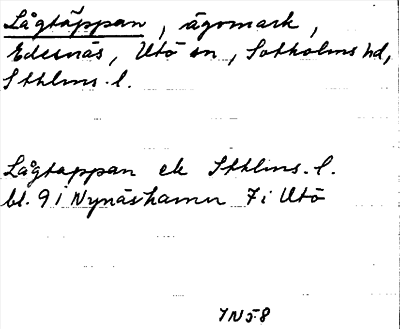 Lågtäppan, ägomark,
Edesnäs, Utö sn, Sotholms hd,
Sthlms. l.
Lågtäppan ek Sthlms. l.
bl. 9 i Nynäshamn 7 i Utö
7N58